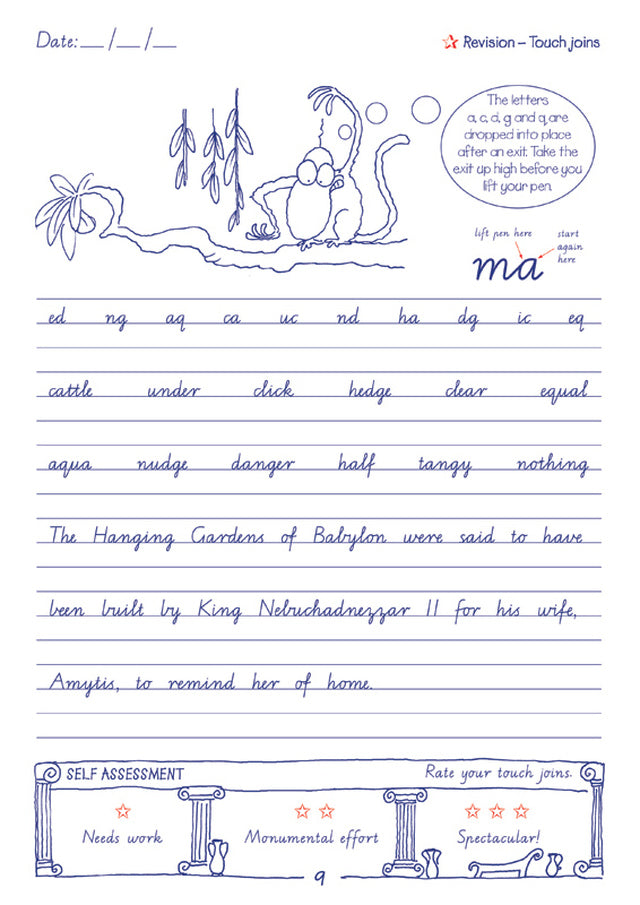 Date:__ /__ /__
Revision – Touch joins
The letters
a, c, d, g and q, are
dropped into place
after an exit. Take the
exit up high before you
lift your pen.
lift pen here
start
again
here
ma
ed ng aq ca uc nd ha dg ic eq
cattle under click hedge clear equal
aqua nudge danger half tangy nothing
The Hanging Gardens of Babylon were said to have
been built by King Nebuchadnezzar II for his wife,
Amytis, to remind her of home.
SELF ASSESSMENT
Rate your touch joins.
Needs work
Monumental effort
Spectacular!
9